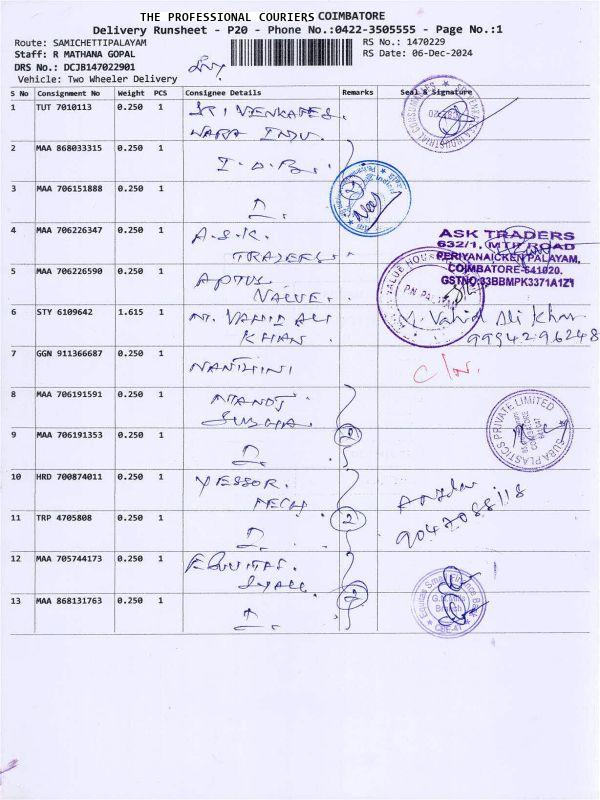 THE PROFESSIONAL COURIERS COIMBATORE
Delivery Runsheet - P20 - Phone No.:0422-3505555 - Page No.:1
Route: SAMICHETTIPALAYAM RS No.: 1470229
Staff: R MATHANA GOPAL RS Date: 06-Dec-2024
DRS No.: DCJB147022901
Vehicle: Two Wheeler Delivery
S No Consignment No Weight PCS Consignee Details Remarks Seal & Signature
1 TUT 7010113 0.250 1 SRI VENKATES
WARA INDU.
2 MAA 868033315 0.250 1 I.O.B.
2
3 MAA 706151888 0.250 1
4 MAA 706226347 0.250 1 A.S.K.
TRADERS.
ASK TRADERS
632/1, MTP ROAD
PERIYANAICKEN PALAYAM,
COIMBATORE-641020.
GSTNO:33BBMPK3371A1Z1
5 MAA 706226590 0.250 1 APTUS
VALUE.
6 STY 6109642 1.615 1 M. VAHID ALI
KHAN.
M. Vahid Ali Khan
9994296248
7 GGN 911366687 0.250 1 NANTHINI
8 MAA 706191591 0.250 1 MANOJ
SUBHA.
SUBA PLASTICS PRIVATE LIMITED
9 MAA 706191353 0.250 1 2
10 HRD 700874011 0.250 1
MECH.
9047088118
11 TRP 4705808 0.250 1 2
12 MAA 705744173 0.250 1 EQUITAS.
SMALL.
Equitas Small Finance Bank
Branch
13 MAA 868131763 0.250 1 2